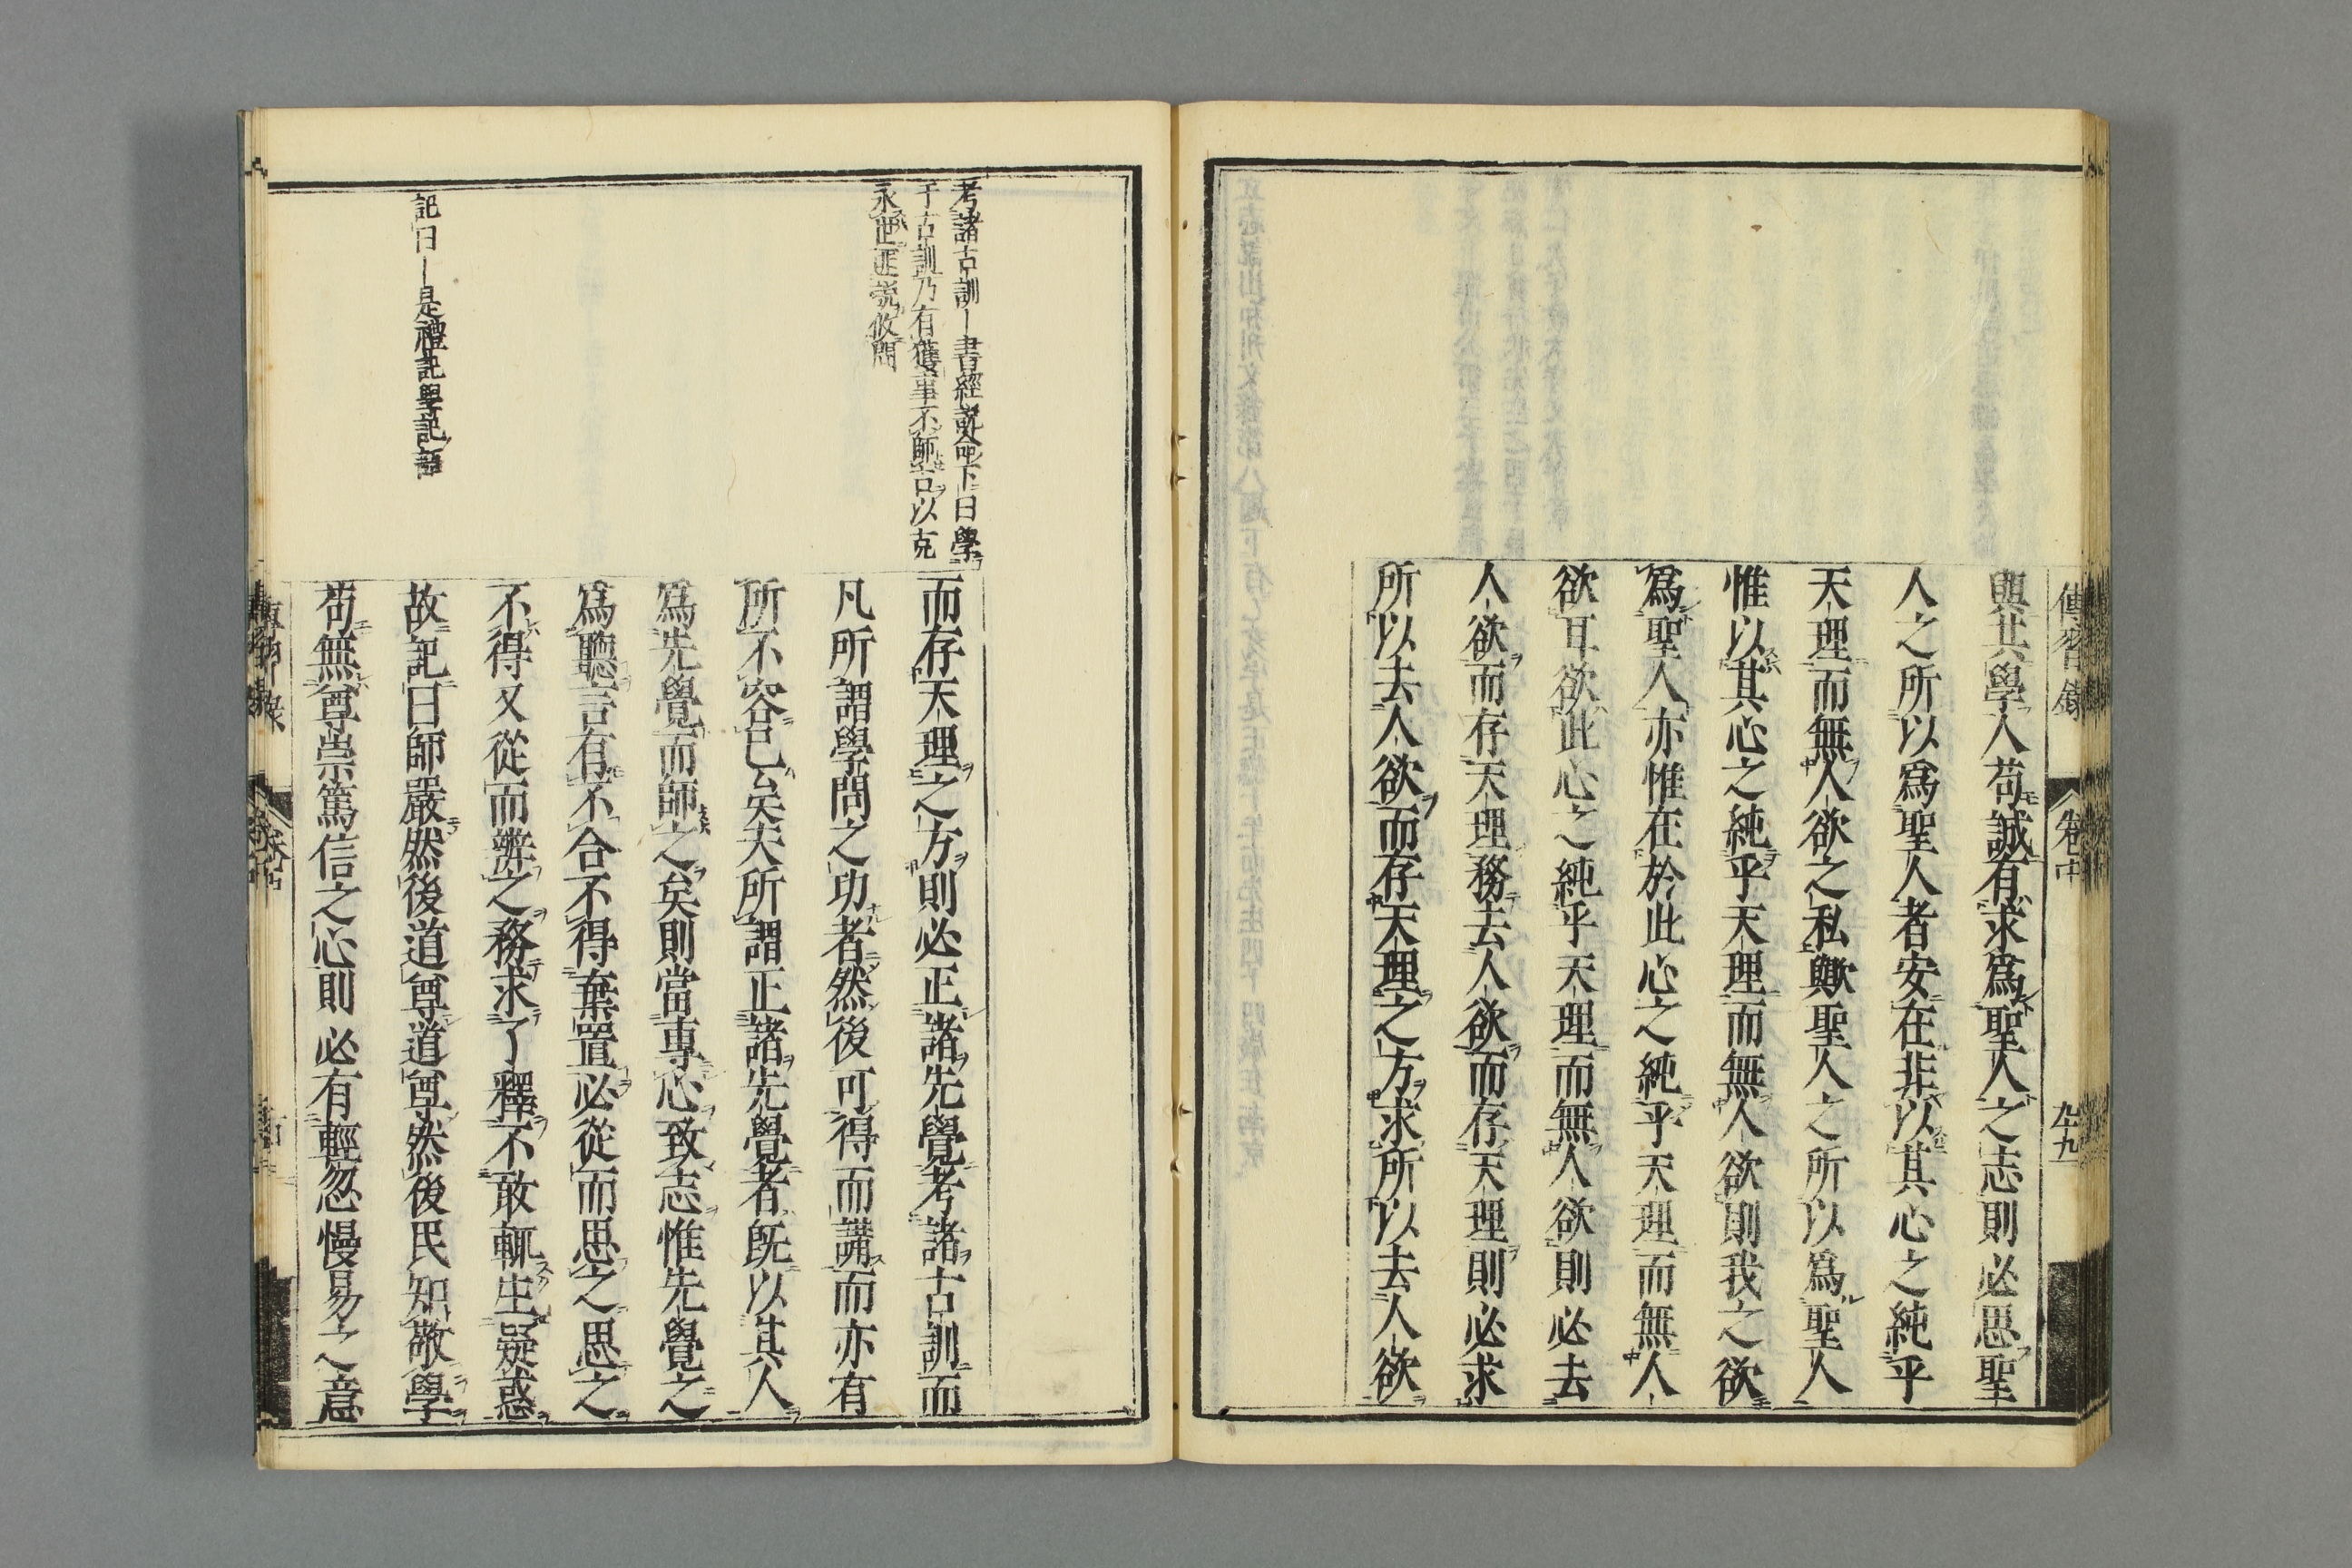 傳習錄
卷中
與共學人苟誠有求爲聖人之志則必思聖
人之所以爲聖人者安在非以其心之純乎
天理而無人欲之私歟聖人之所以爲聖人
惟以其心之純乎天理而無人欲則我之欲
爲聖人亦惟在於此心之純乎天理而無人
欲耳欲此心之純乎天理而無人欲則必去
人欲而存天理務去人欲而存天理則必求
所以去人欲而存天理之方求所以去人欲
考諸古訓―書經說命下曰學
于古訓乃有獲事不師古以克
永世匪說攸聞
記曰―是禮記學記語
而存天理之方則必正諸先覺考諸古訓而
凡所謂學問之功者然後可得而講而亦有
所不容已矣夫所謂正諸先覺者既以其人
爲先覺而師之矣則當專心致志惟先覺之
爲聽言有不合不得棄置必從而思之思之
不得又從而辨之務求了釋不敢輒生疑惑
故記曰師嚴然後道尊道尊然後民知敬學
苟無尊崇篤信之心則必有輕忽慢易之意